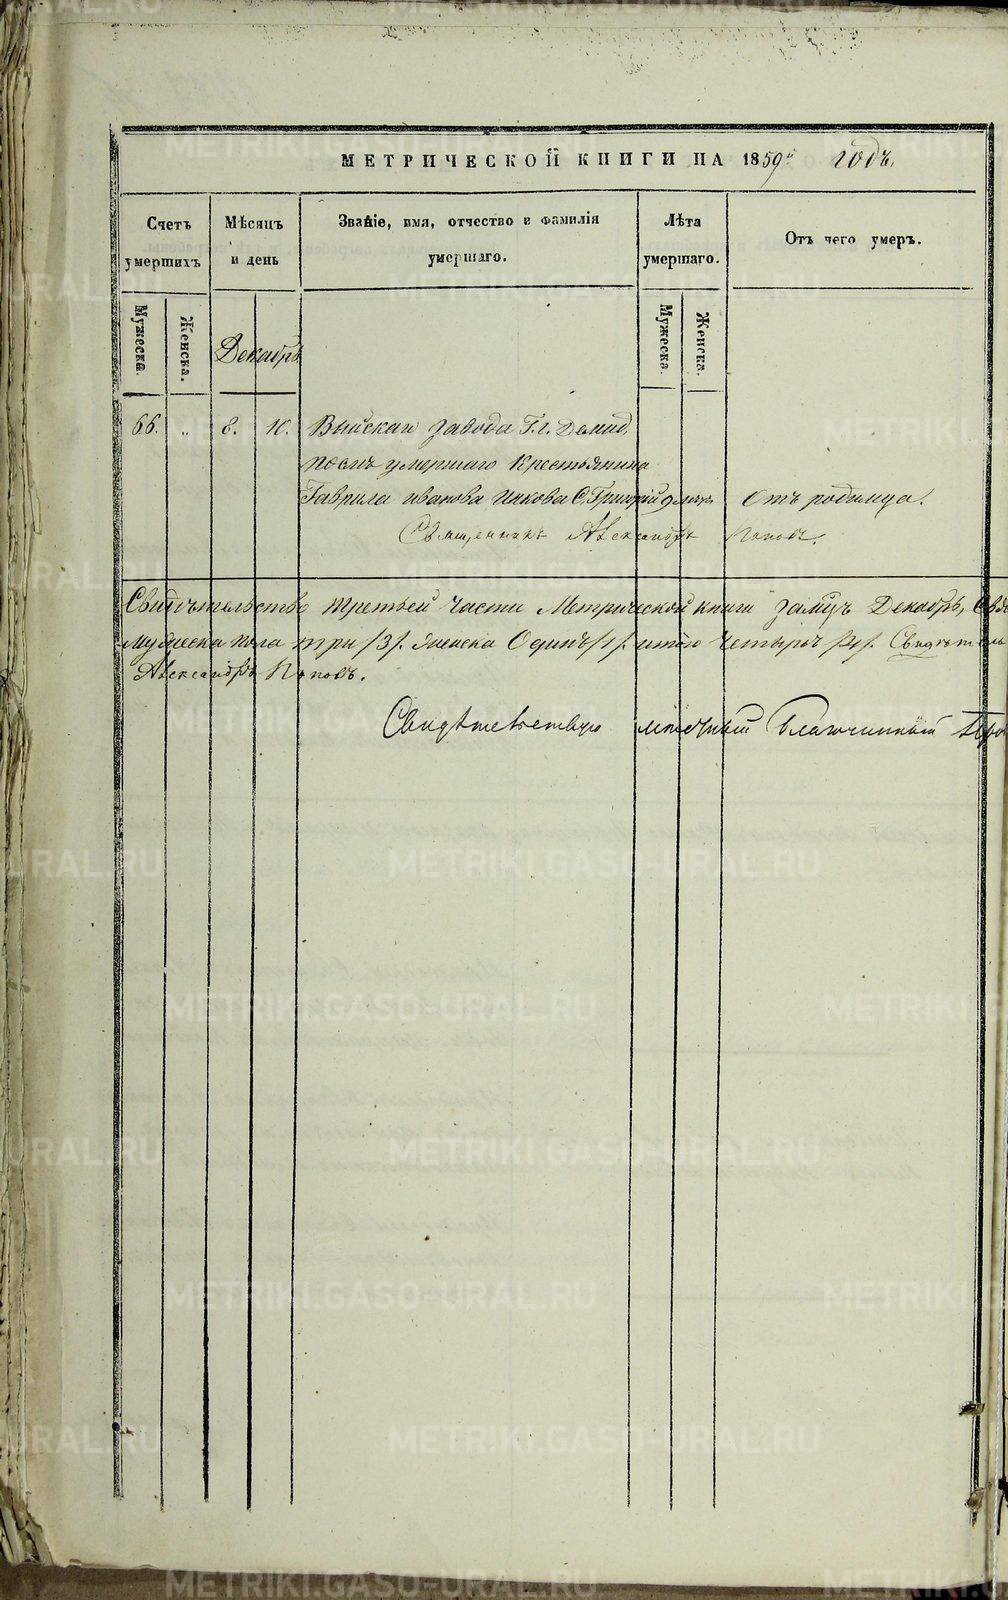 МЕТРИЧЕСКОЙ КНИГИ НА 1859й годъ.
Счетъ умершихъ
Мѣсяцъ и день
Званіе, имя, отчество и фамилія умершаго.
Лѣта умершаго.
Отъ чего умеръ.
Мужеска.
Женска.
Мужеска.
Женска.
Декабрь
66. „ 8. 10. Выйскаго завода Г.г. Демид.
послѣ умершаго Крестьянина
Гаврила Иванова С. Григорій Отъ родимца.
Священникъ Александръ Поповъ.
Свидѣтельство третьей части Метрической книги Декабрь,
мужеска пола три /3/. женска Одинъ /1/. итого Четыре
Александръ Поповъ.
Свидѣтельствую мѣстный Благочинный
METRIKI.GASO-URAL.RU